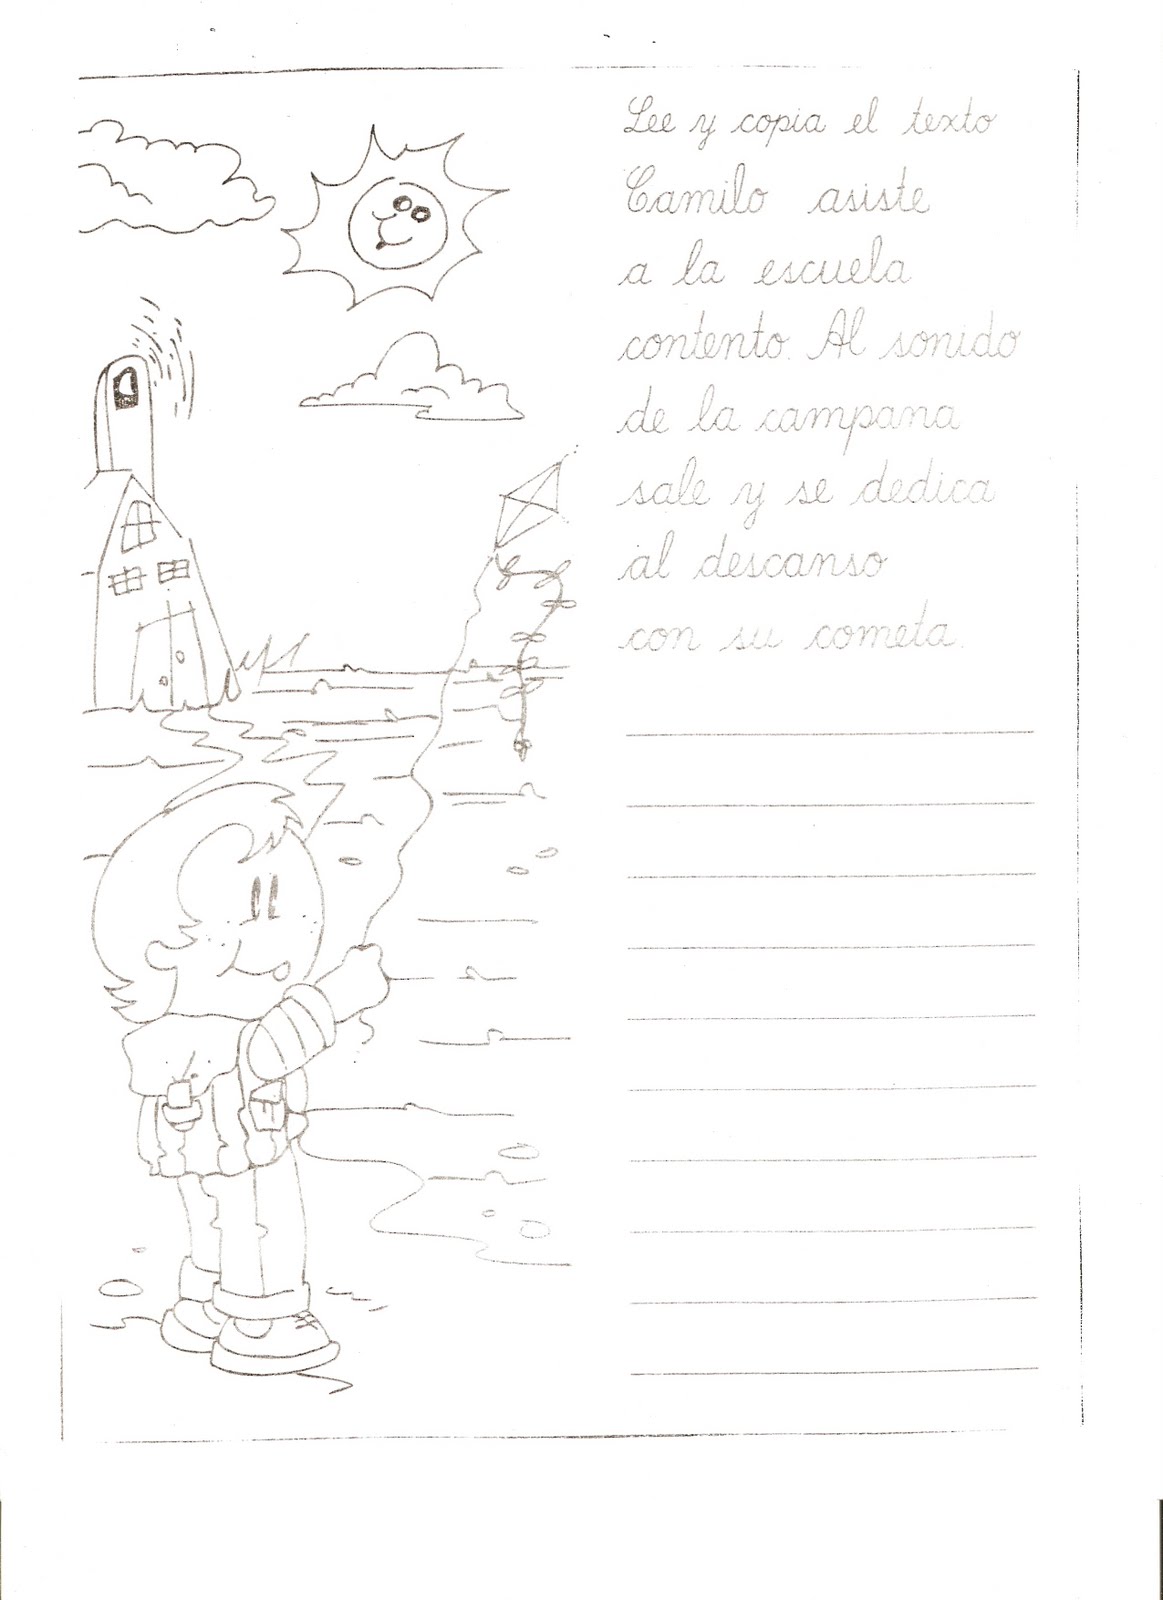 Lee y copia el texto
Camilo asiste
a la escuela
contento. Al sonido
de la campana
sale y se dedica
al descanso
con su cometa.